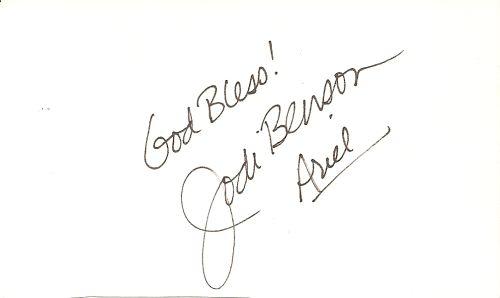 God Bless!
Jodi Benson
Ariel